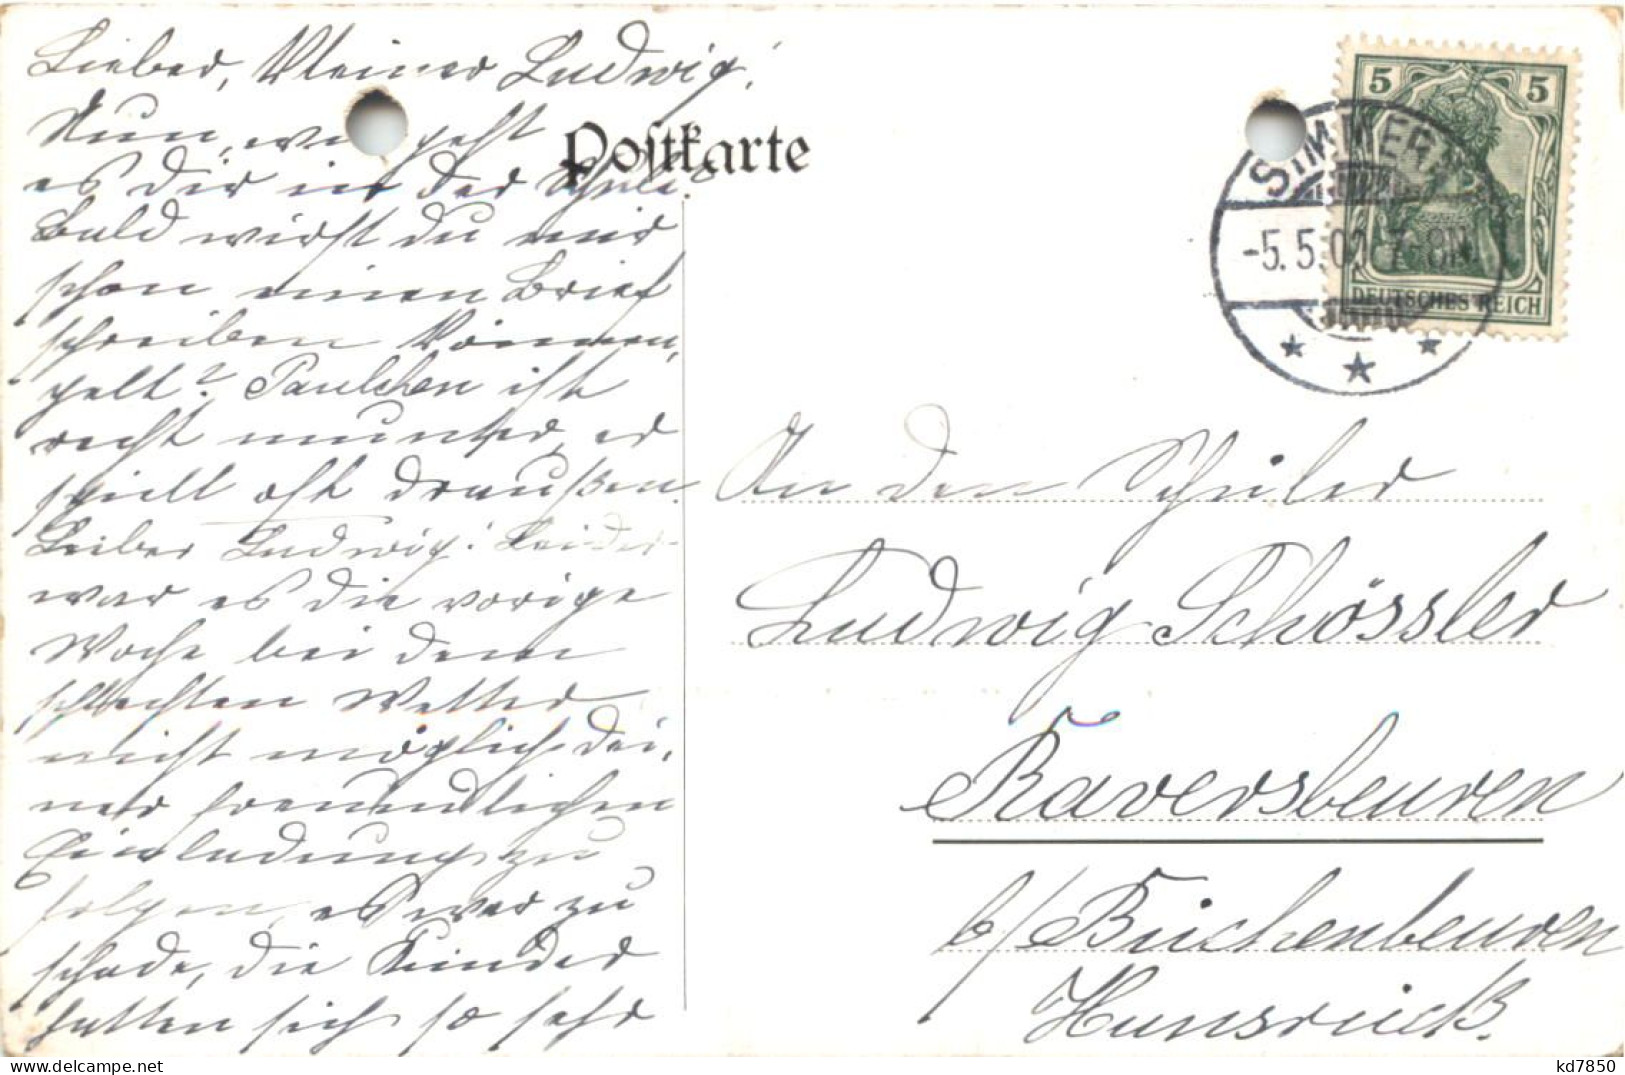 Lieber, kleiner Ludwig!
Nun, wie geht
es dir in der Schule?
Bald wirst du mir
schon einen Brief
schreiben können,
gelt? Paulchen ist
recht munter, er
spielt oft draußen.
Lieber Ludwig! Leider
war es die vorige
Woche bei dem
schlechten Wetter
nicht möglich dei-
ner freundlichen
Einladung zu
folgen, es war zu
schade, die Kinder
hatten sich so sehr
Postkarte
5 5
DEUTSCHES REICH
SIMMERN
-5.5.09 7-8N.
An den Schüler
Ludwig Schössler
Raversbeuren
b/ Büchenbeuren
Hunsrück.
delcampe.net
kd7850